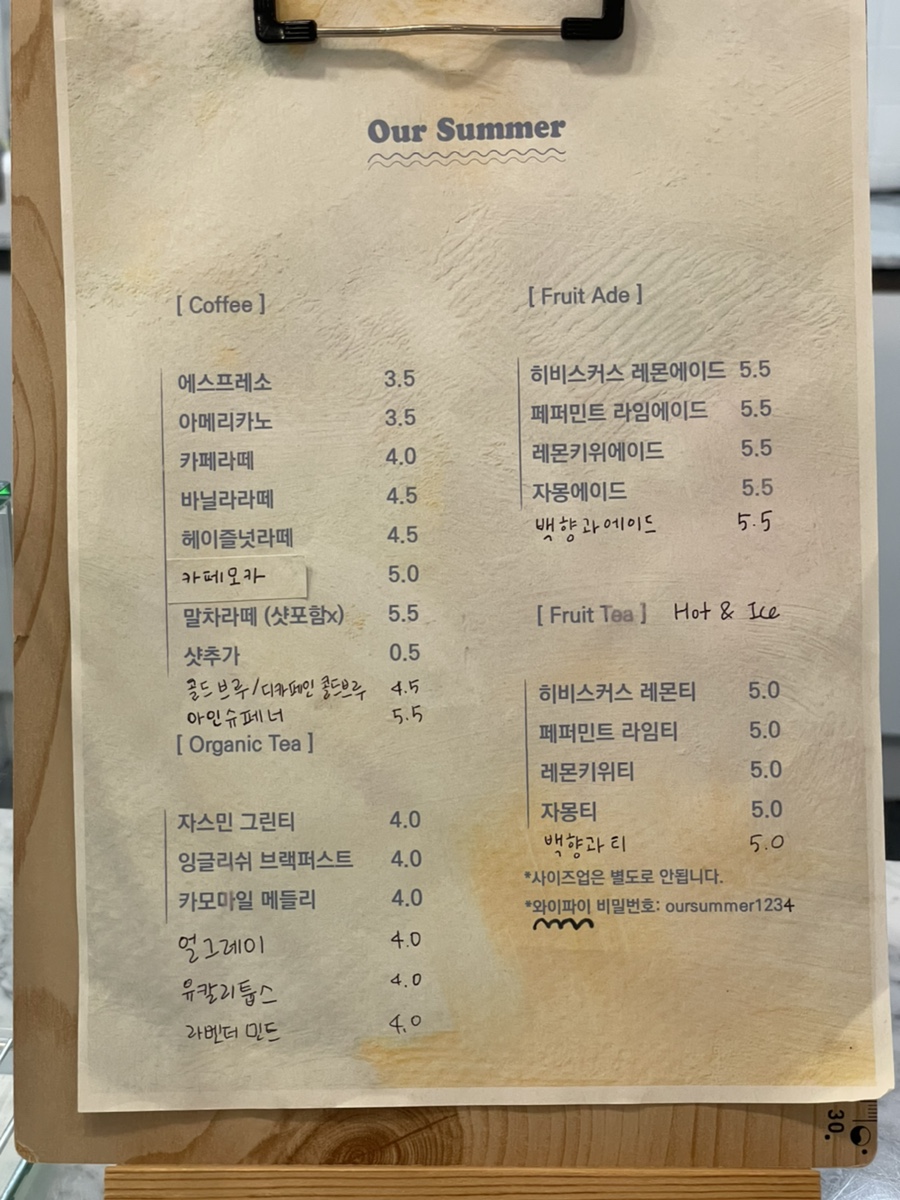 Our Summer
[ Coffee ]
에스프레소 3.5
아메리카노 3.5
카페라떼 4.0
바닐라라떼 4.5
헤이즐넛라떼 4.5
카페모카 5.0
말차라떼 (샷포함x) 5.5
샷추가 0.5
콜드브루/디카페인 콜드브루 4.5
아인슈페너 5.5
[ Organic Tea ]
자스민 그린티 4.0
잉글리쉬 브랙퍼스트 4.0
카모마일 메들리 4.0
얼그레이 4.0
유칼리툽스 4.0
라벤더 민트 4.0
[ Fruit Ade ]
히비스커스 레몬에이드 5.5
페퍼민트 라임에이드 5.5
레몬키위에이드 5.5
자몽에이드 5.5
백향과에이드 5.5
[ Fruit Tea ] Hot & Ice
히비스커스 레몬티 5.0
페퍼민트 라임티 5.0
레몬키위티 5.0
자몽티 5.0
백향과티 5.0
*사이즈업은 별도로 안됩니다.
*와이파이 비밀번호: oursummer1234
30.